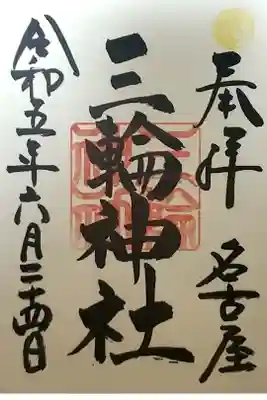 奉拝 名古屋
三輪神社
令和五年六月二十四日